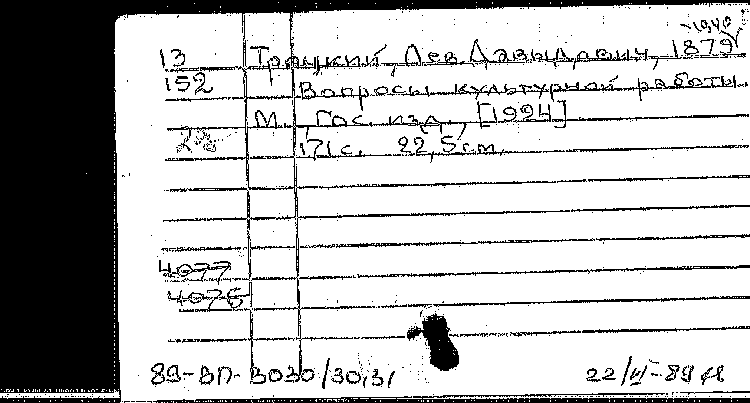 -1940
13 Троцкий, Лев Давыдович, 1879
152 Вопросы культурной работы.
М., Гос. изд., [1924]
171 с. 22,5 см.
4077
4076
89-ВП-3030/30,31
22/VI-89